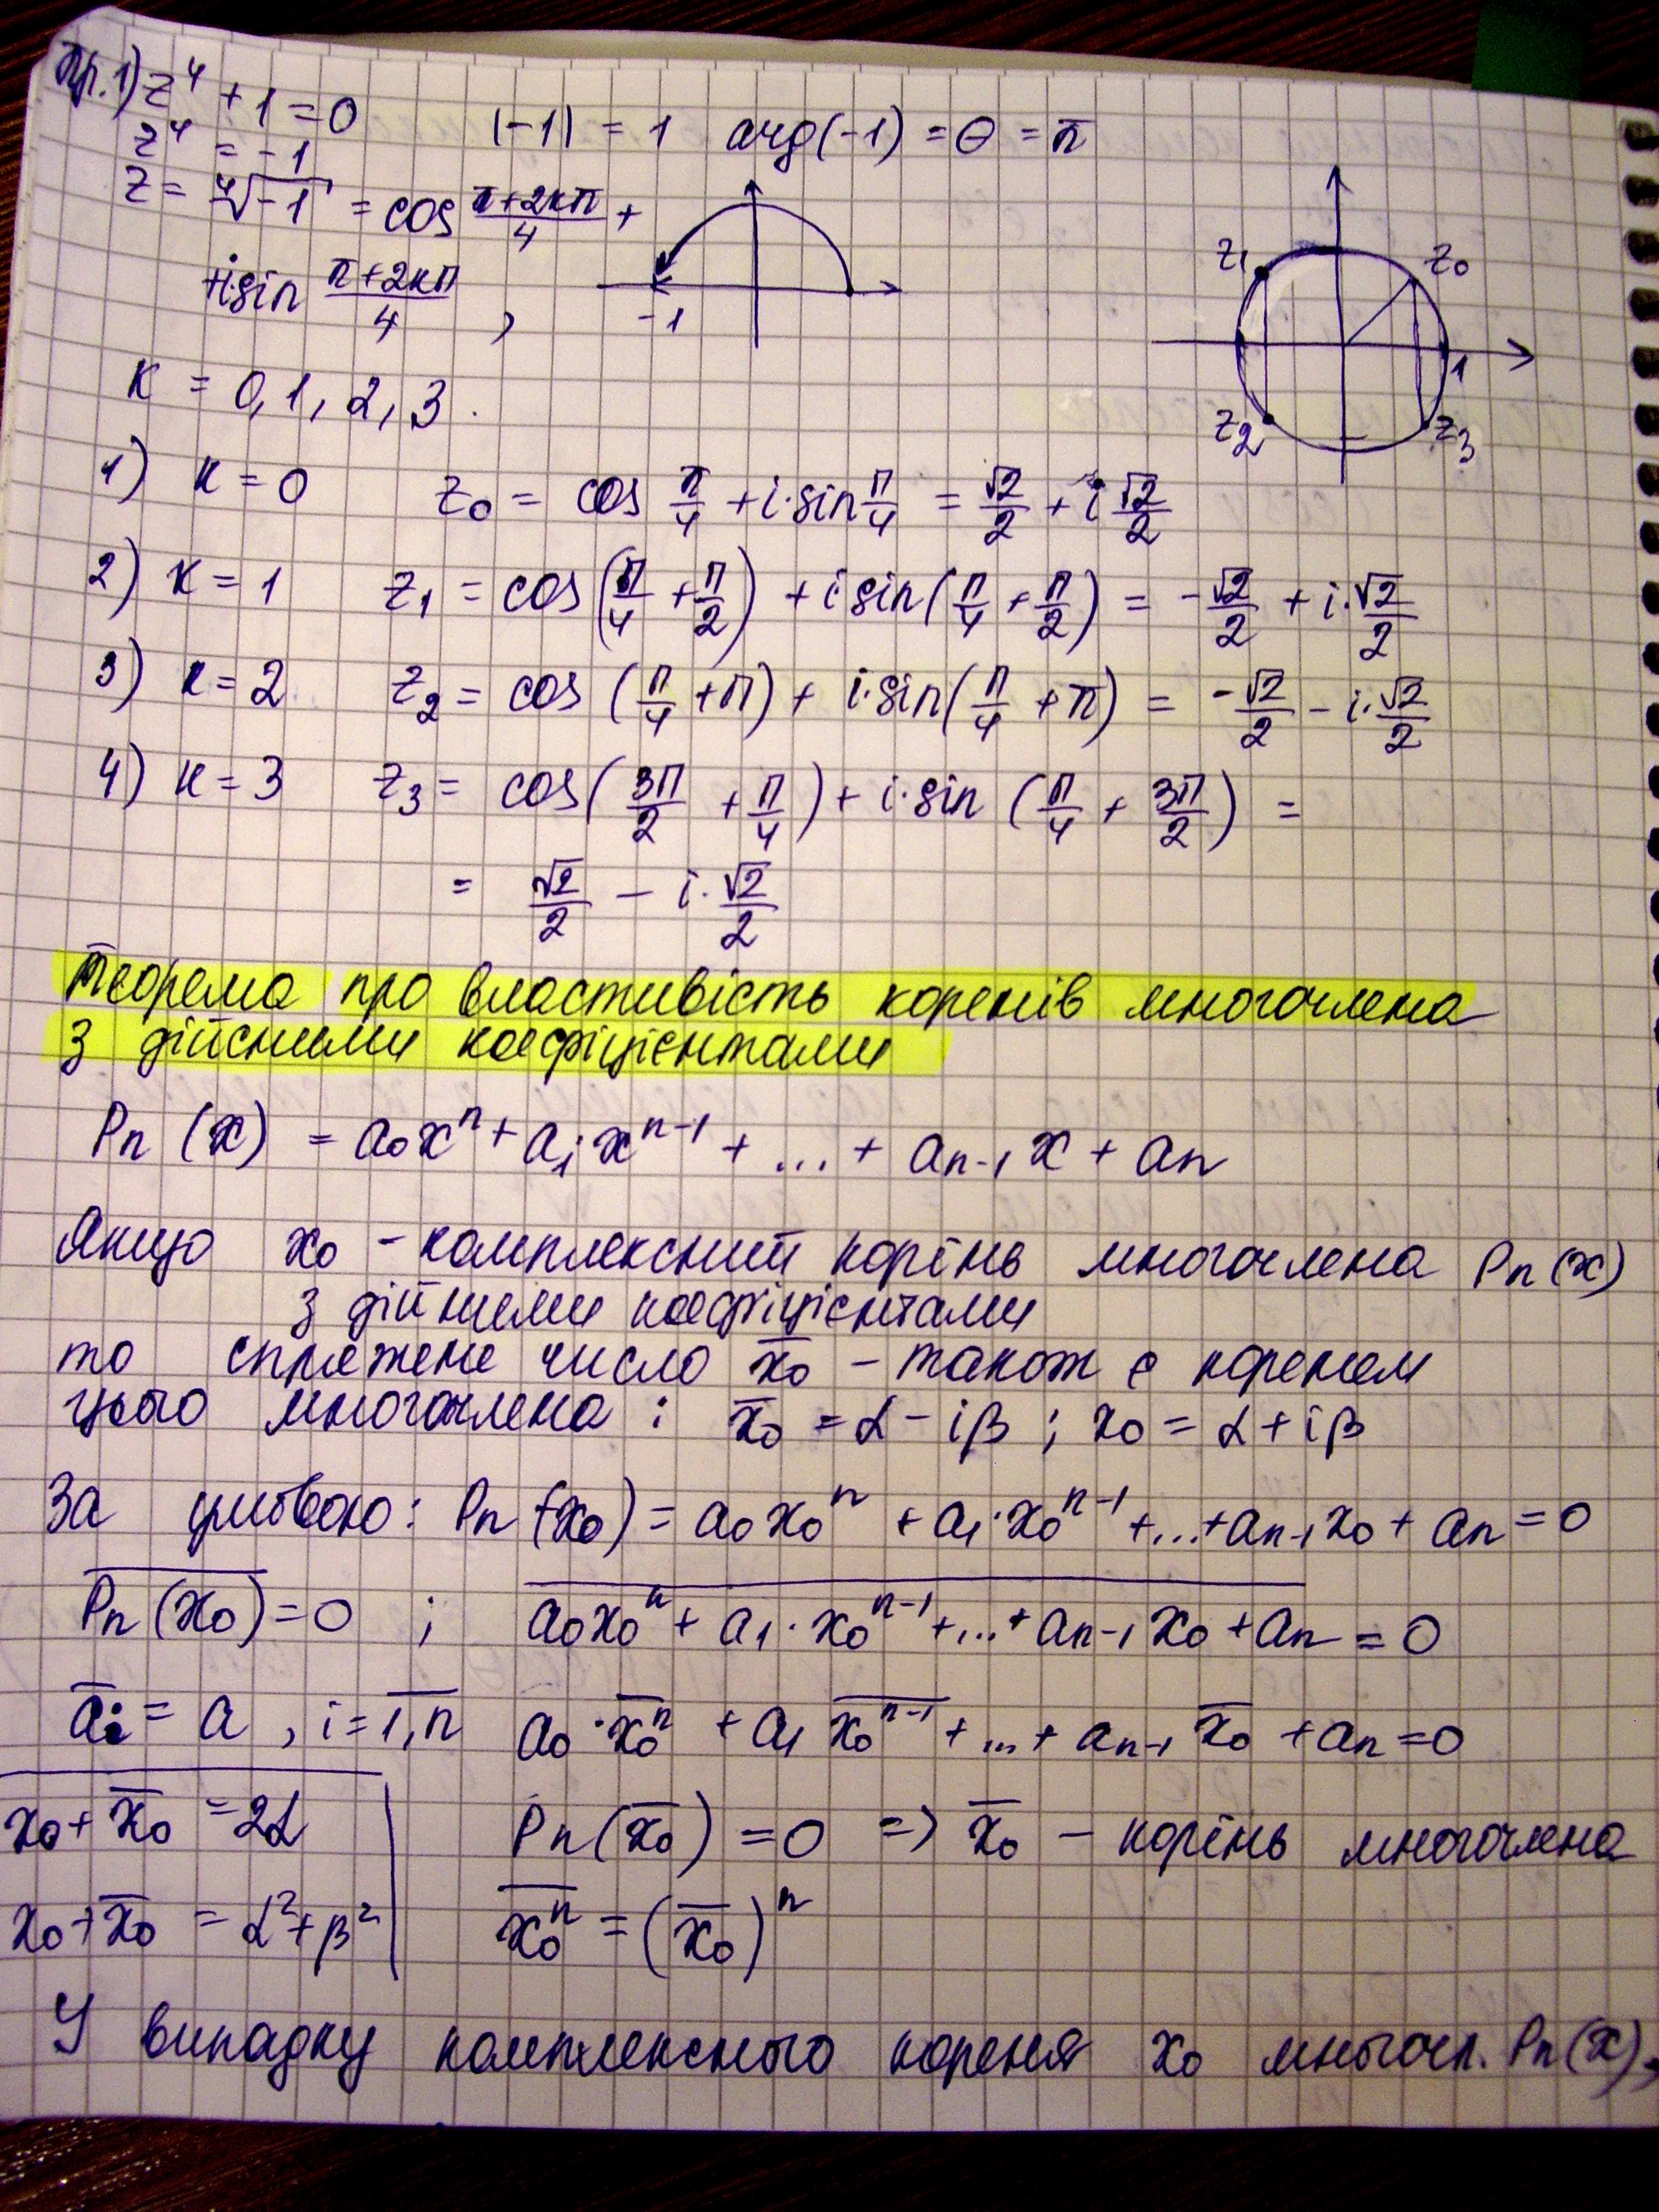 Пр. 1) z⁴ + 1 = 0
|-1| = 1 arg(-1) = θ = π
z⁴ = -1
z = ⁴√-1 = cos (π+2kπ)/4 +
+i·sin (π+2kπ)/4 ,
-1
z₁ z₀
1
z₂ z₃
k = 0, 1, 2, 3.
1) k = 0 z₀ = cos π/4 + i·sin π/4 = √2/2 + i √2/2
2) k = 1 z₁ = cos(π/4 + π/2) + i·sin(π/4 + π/2) = -√2/2 + i·√2/2
3) k = 2 z₂ = cos (π/4 + π) + i·sin(π/4 + π) = -√2/2 - i·√2/2
4) k = 3 z₃ = cos(3π/2 + π/4) + i·sin (π/4 + 3π/2) =
= √2/2 - i·√2/2
Теорема про властивість коренів многочлена
з дійсними коефіцієнтами
Pn (x) = a₀xⁿ + a₁·xⁿ⁻¹ + ... + aₙ₋₁ x + aₙ
Якщо x₀ - комплексний корінь многочлена Pn(x)
з дійними коефіцієнтами
то спряжене число x̄₀ - також є коренем
цього многочлена : x̄₀ = α - iβ ; x₀ = α + iβ
За умовою: Pn (x₀) = a₀x₀ⁿ + a₁·x₀ⁿ⁻¹ + ... + aₙ₋₁x₀ + aₙ = 0
P̅n̅(̅x̅₀̅)̅ = 0 ; a̅₀̅x̅₀̅ⁿ̅ ̅+̅ ̅a̅₁̅·̅x̅₀̅ⁿ̅⁻̅¹̅ ̅+̅.̅.̅.̅+̅ ̅a̅ₙ̅₋̅₁̅ ̅x̅₀̅ ̅+̅ ̅a̅ₙ̅ = 0
āᵢ = a , i = 1̅,̅n̅ a₀·x̅₀̅ⁿ̅ + a₁ x̅₀̅ⁿ̅⁻̅¹̅ + ... + aₙ₋₁ x̄₀ + aₙ = 0
x₀ + x̄₀ = 2α
Pn(x̄₀) = 0 => x̄₀ - корінь многочлена
x₀ + x̄₀ = α² + β²
x̅₀̅ⁿ̅ = (x̄₀)ⁿ
У випадку комплексного кореня x₀ многочл. Pn(x),